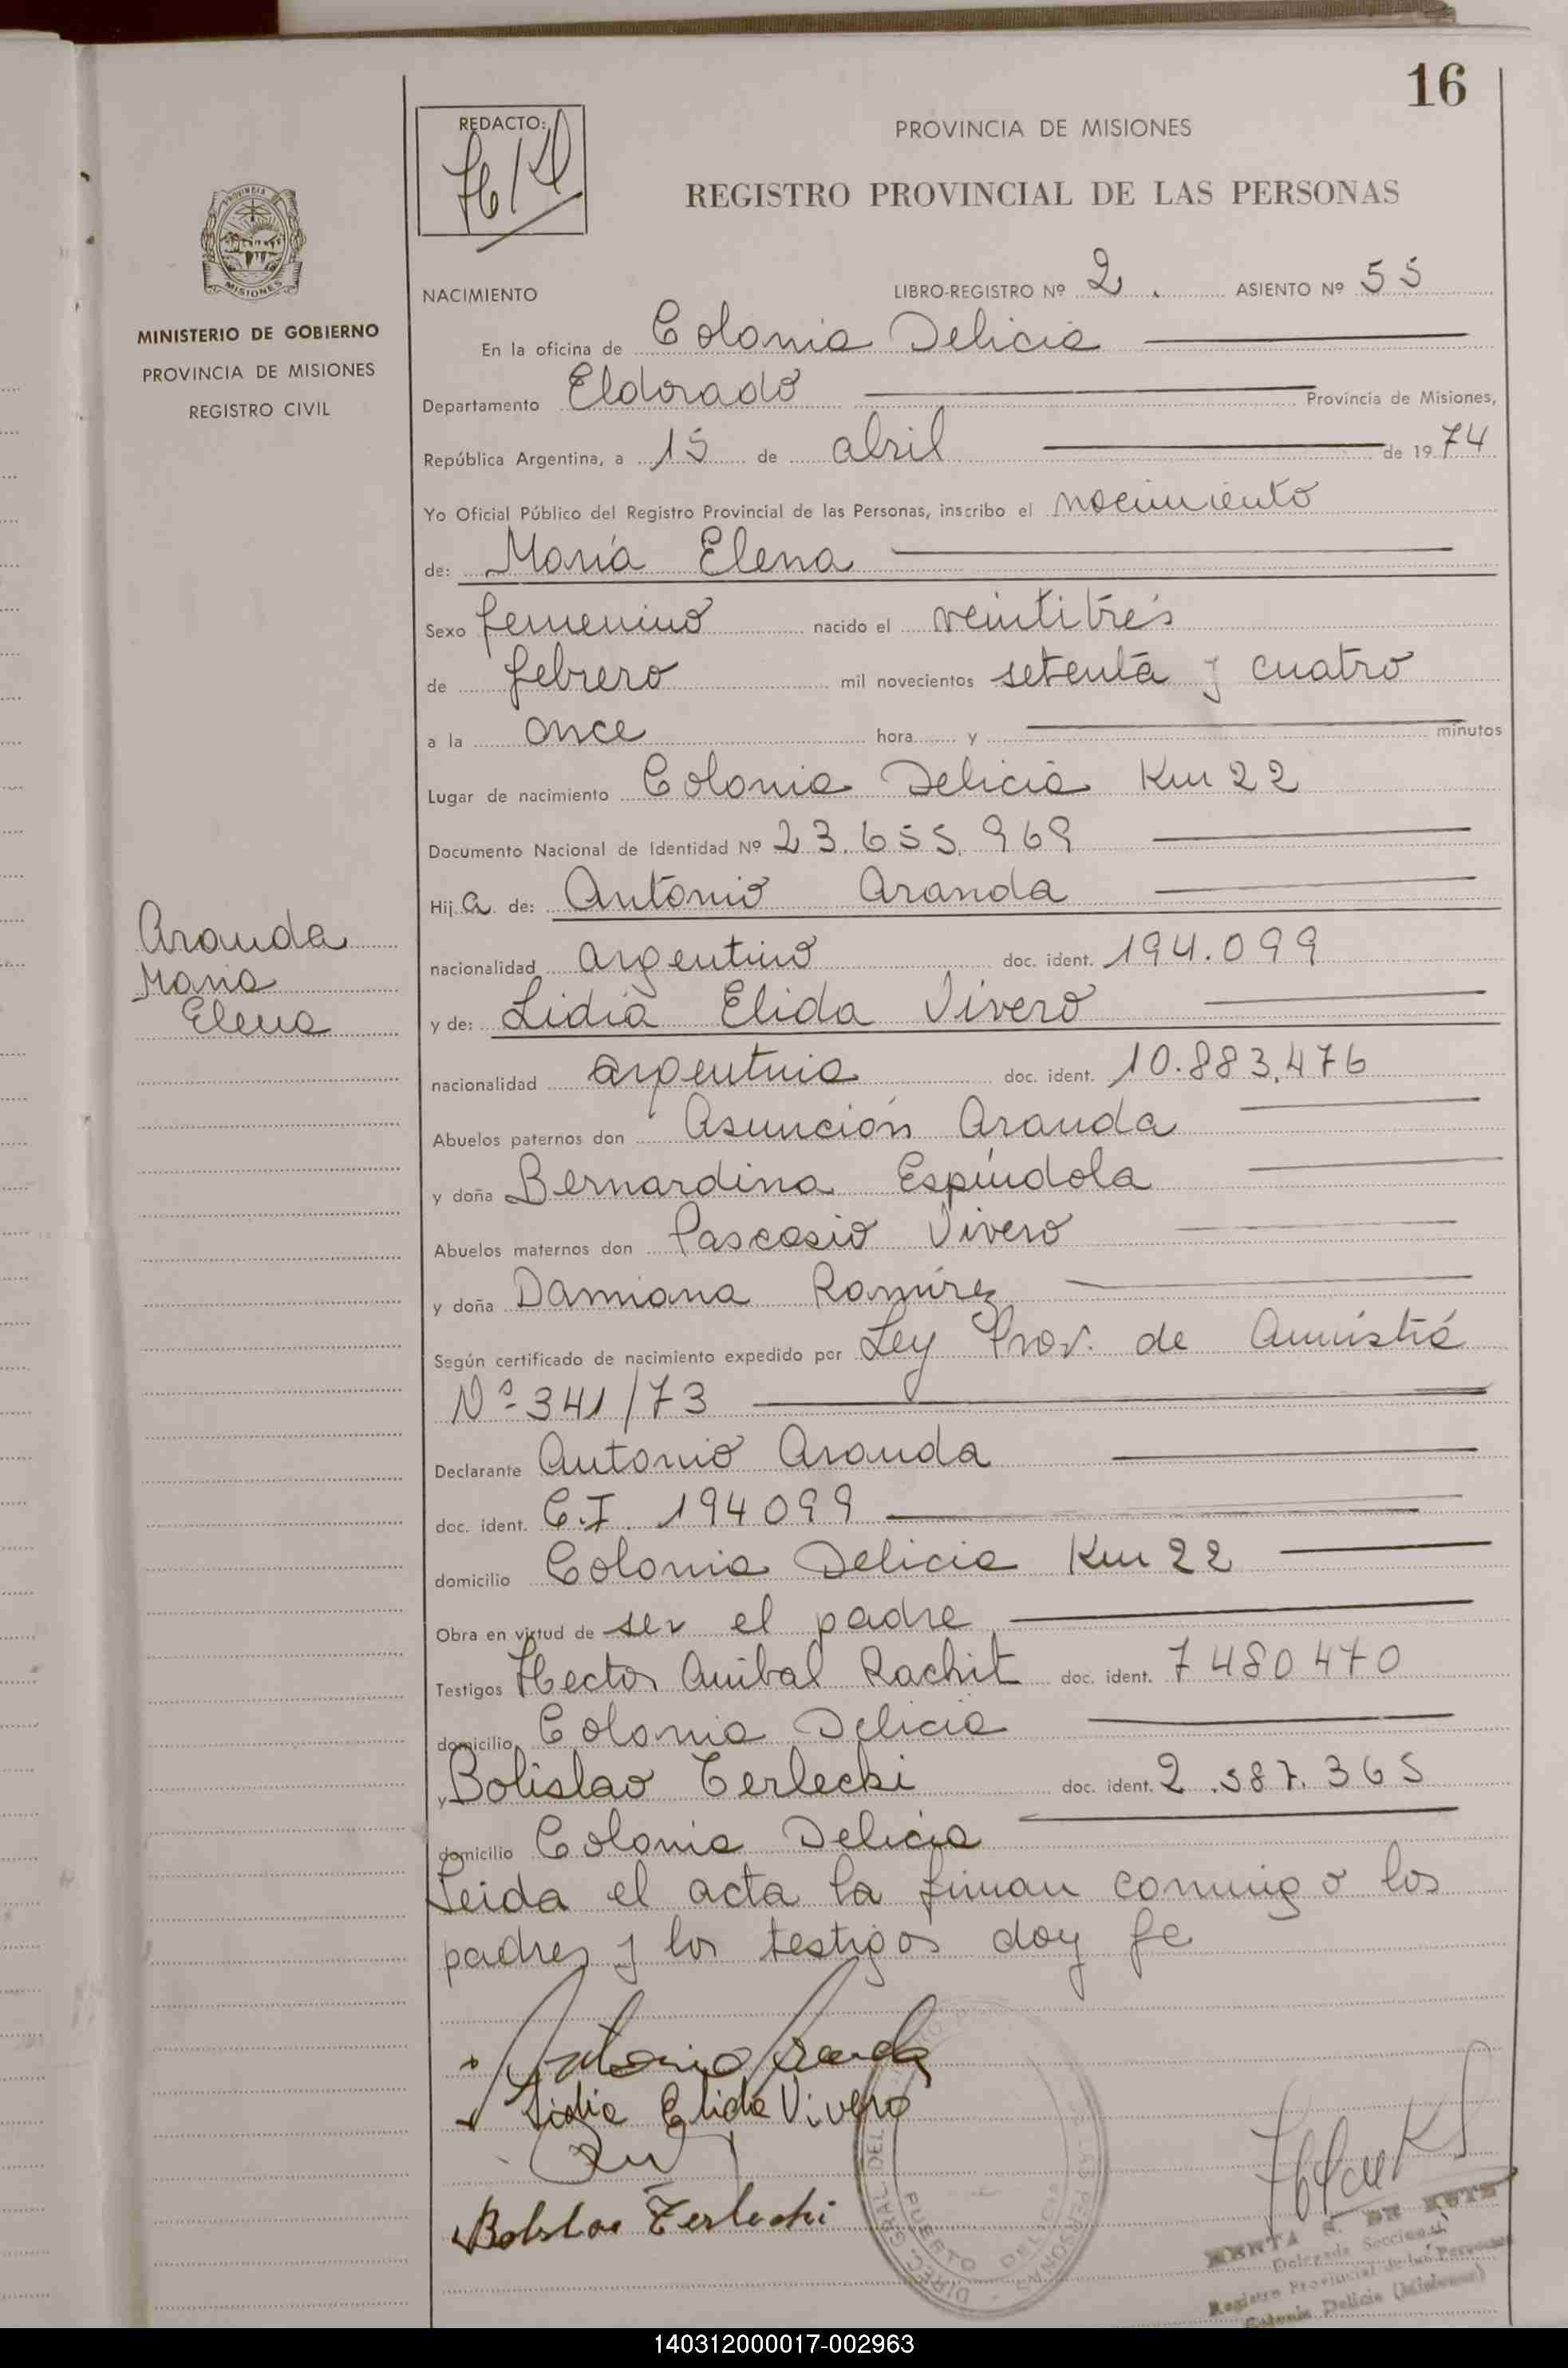 16
REDACTO:
PROVINCIA DE MISIONES
REGISTRO PROVINCIAL DE LAS PERSONAS
PROVINCIA
MISIONES
MINISTERIO DE GOBIERNO
PROVINCIA DE MISIONES
REGISTRO CIVIL
NACIMIENTO LIBRO-REGISTRO Nº 2. ASIENTO Nº 55
En la oficina de Colonia Delicia
Departamento Eldorado Provincia de Misiones,
República Argentina, a 15 de abril de 1974
Yo Oficial Público del Registro Provincial de las Personas, inscribo el nacimiento
de: María Elena
Sexo femenino nacido el veintitrés
de febrero mil novecientos setenta y cuatro
a la once hora y minutos
Lugar de nacimiento Colonia Delicia Km 22
Documento Nacional de Identidad Nº 23.655.969
Hija de: Antonio Aranda
Aranda
Maria
Elena
nacionalidad argentino doc. ident. 194.099
y de: Lidia Elida Vivero
nacionalidad argentina doc. ident. 10.883.476
Abuelos paternos don Asunción Aranda
y doña Bernardina Espíndola
Abuelos maternos don Pascasio Vivero
y doña Damiana Ramírez
Según certificado de nacimiento expedido por Ley Prov. de Amnistía
Nº 341/73
Declarante Antonio Aranda
doc. ident. C.I. 194099
domicilio Colonia Delicia Km 22
Obra en virtud de ser el padre
Testigos Hector Anibal Rachit doc. ident. 7480470
domicilio Colonia Delicia
y Bolislao Terlecki doc. ident. 2.587.365
domicilio Colonia Delicia
Leida el acta la firman conmigo los
padres y los testigos doy fe
Antonio Aranda
Lidia Elida Vivero
Bolislao Terlecki
DIREC. GRAL. DEL DE LAS PERSONAS
PUERTO DELICIA
Delegada Seccional
Registro Provincial de las Personas
Colonia Delicia (Misiones)
140312000017-002963